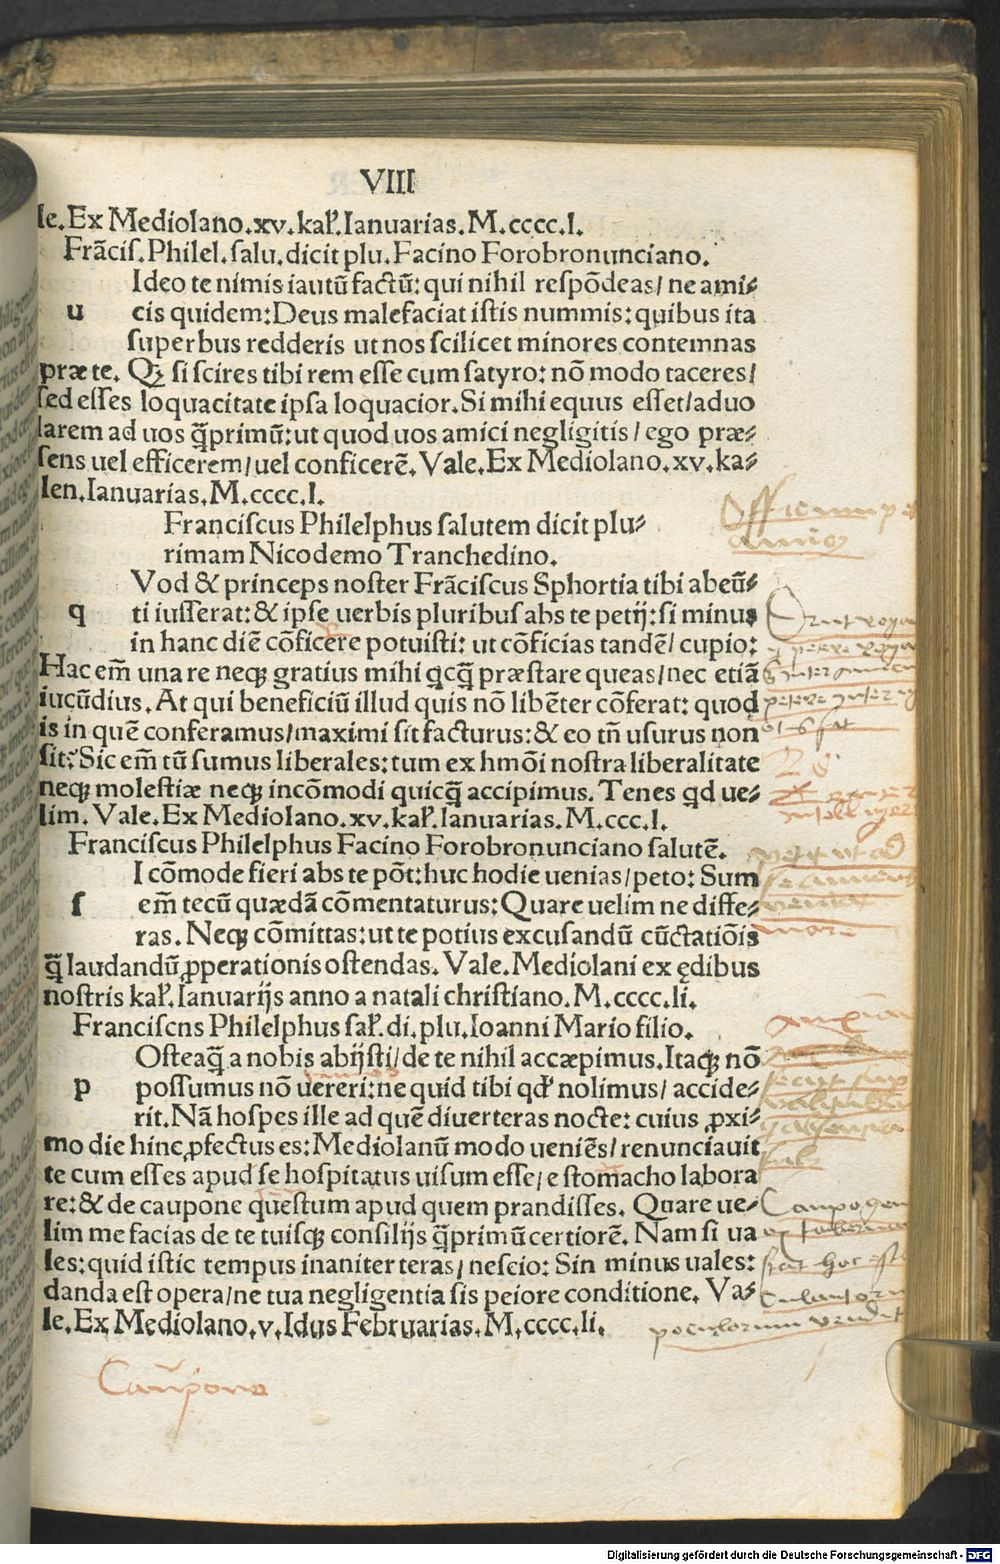 VIII
le. Ex Mediolano. xv. kal̛. Ianuarias. M. cccc. I.
Frãcis. Philel. salu. dicit plu. Facino Forobronunciano.
Ideo te nimis iautũ factũ: qui nihil respõdeas/ ne ami⸗
u cis quidem: Deus malefaciat istis nummis: quibus ita
superbus redderis ut nos scilicet minores contemnas
præ te. Qꝫ si scires tibi rem esse cum satyro: nõ modo taceres/
sed esses loquacitate ipsa loquacior. Si mihi equus esset/ aduo
larem ad uos q̃primũ: ut quod uos amici negligitis / ego præ⸗
sens uel efficerem/ uel conficerẽ. Vale. Ex Mediolano. xv. ka⸗
len. Ianuarias. M. cccc. I.
Franciscus Philelphus salutem dicit plu⸗
rimam Nicodemo Tranchedino.
Vod & princeps noster Frãciscus Sphortia tibi abeũ⸗
q ti iusserat: & ipse uerbis pluribus abs te petij: si minus
in hanc diẽ cõficere potuisti: ut cõficias tandẽ/ cupio:
Hac em̃ una re neqꝫ gratius mihi qcq̃ præstare queas/ nec etiã
iucũdius. At qui beneficiũ illud quis nõ libẽter cõferat: quod
is in quẽ conferamus/ maximi sit facturus: & eo tñ usurus non
sit: Sic em̃ tũ sumus liberales: tum ex hmõi nostra liberalitate
neqꝫ molestiæ neqꝫ incõmodi quicq̃ accipimus. Tenes qd ue⸗
lim. Vale. Ex Mediolano. xv. kal̛. Ianuarias. M. ccc. I.
Franciscus Philelphus Facino Forobronunciano salutẽ.
I cõmode fieri abs te põt: huc hodie uenias/ peto: Sum
s em̃ tecũ quædã cõmentaturus: Quare uelim ne diffe⸗
ras. Neqꝫ cõmittas: ut te potius excusandũ cũctatiõis
q̃ laudandũ ꝓperationis ostendas. Vale. Mediolani ex ędibus
nostris kal̛. Ianuarijs anno a natali christiano. M. cccc. li.
Franciscns Philelphus sal̛. di. plu. Ioanni Mario filio.
Osteaq̃ a nobis abijsti/ de te nihil accæpimus. Itaqꝫ nõ
p possumus nõ uereri: ne quid tibi qd̛ nolimus/ accide⸗
rit. Nã hospes ille ad quẽ diuerteras nocte: cuius ꝓxi⸗
mo die hinc ꝓfectus es: Mediolanũ modo ueniẽs/ renunciauit
te cum esses apud se hospitatus uisum esse/ e stomacho labora
re: & de caupone questum apud quem prandisses. Quare ue⸗
lim me facias de te tuisqꝫ consilijs q̃primũ certiorẽ. Nam si ua
les: quid istic tempus inaniter teras/ nescio: Sin minus uales:
danda est opera/ ne tua negligentia sis peiore conditione. Va⸗
le. Ex Mediolano. v. Idus Februarias. M. cccc. li.
Caupono
Digitalisierung gefördert durch die Deutsche Forschungsgemeinschaft - DFG